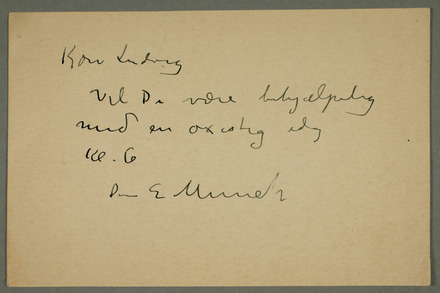 Kjære Ludvig
Vil De være behjælpelig
med en oxesteg idag
Kl. 6
Din E Munch